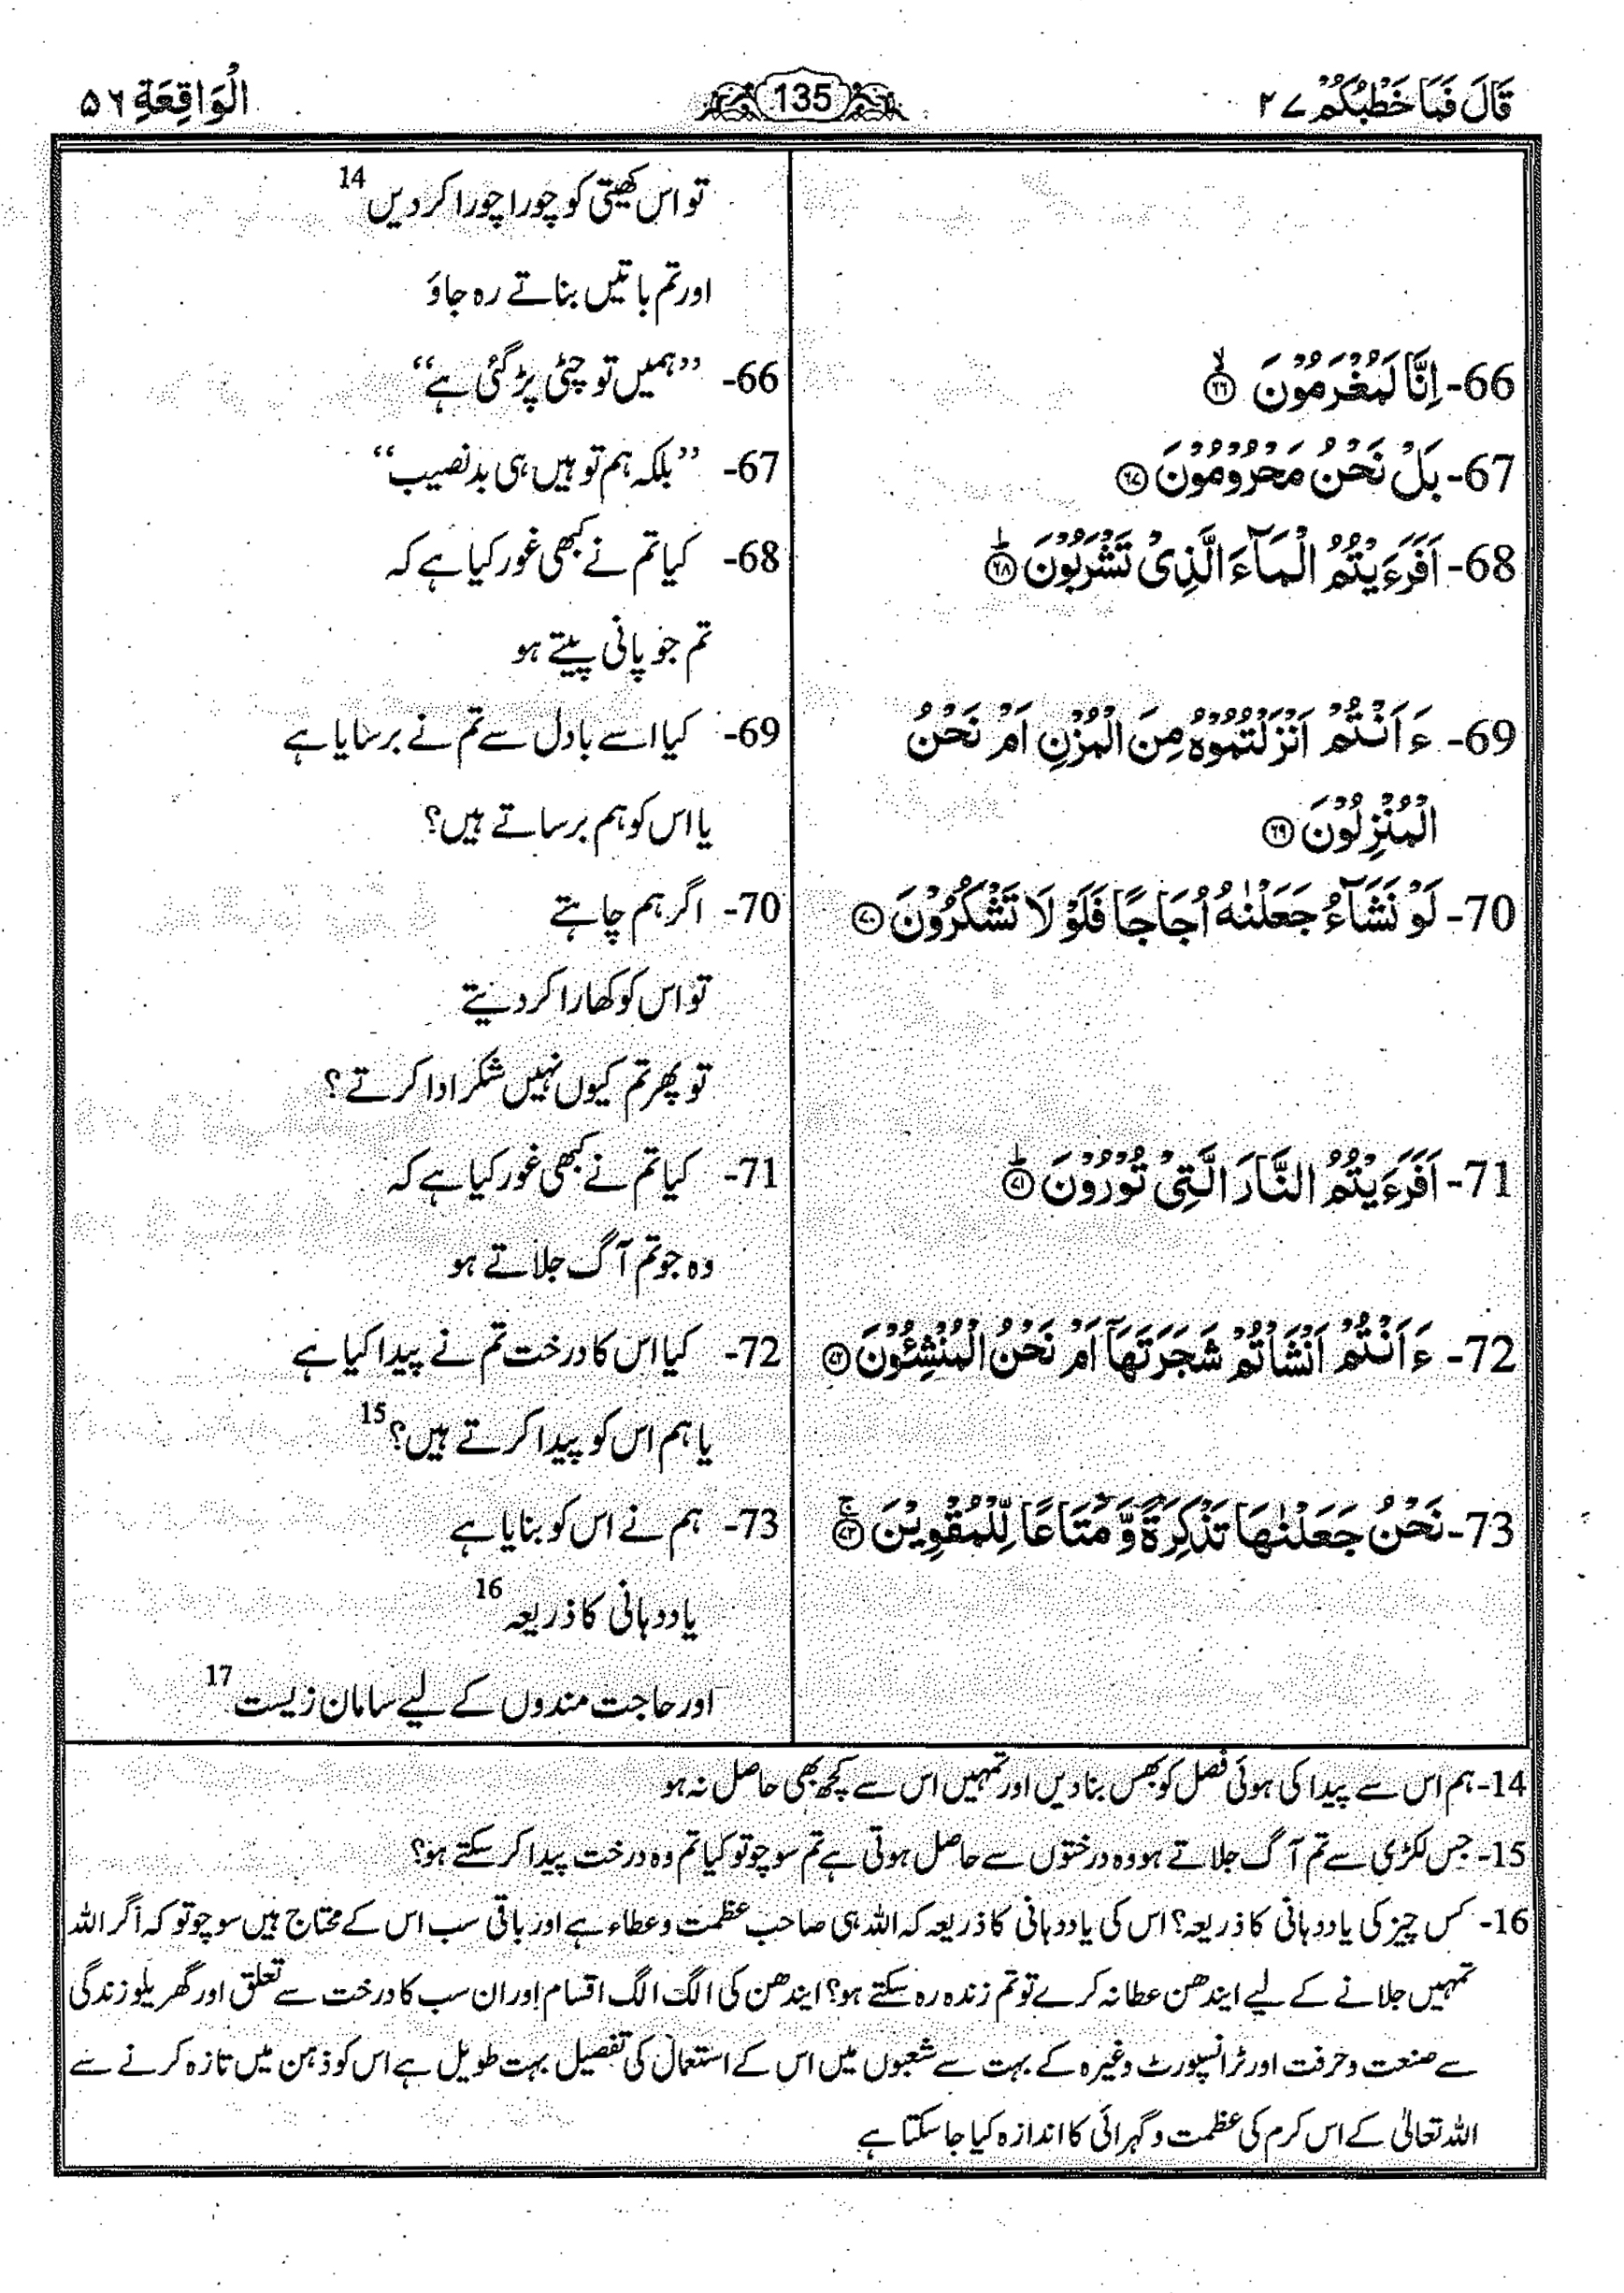 قَالَ فَمَا خَطْبُكُمْ ۲۷
135
الْوَاقِعَةِ ۵٦
تو اس کھیتی کو چورا چورا کر دیں 14
اور تم باتیں بناتے رہ جاؤ
66- اِنَّا لَمُغْرَمُوْنَ ۙ﴿٦٦﴾
66- ’’ہمیں تو چٹی پڑ گئی ہے‘‘
67- بَلْ نَحْنُ مَحْرُوْمُوْنَ ﴿٦٧﴾
67- ’’بلکہ ہم تو ہیں ہی بدنصیب‘‘
68- اَفَرَءَيْتُمُ الْمَآءَ الَّذِيْ تَشْرَبُوْنَ ؕ﴿٦٨﴾
68- کیا تم نے کبھی غور کیا ہے کہ
تم جو پانی پیتے ہو
69- ءَاَنْتُمْ اَنْزَلْتُمُوْهُ مِنَ الْمُزْنِ اَمْ نَحْنُ
الْمُنْزِلُوْنَ ﴿٦٩﴾
69- کیا اسے بادل سے تم نے برسایا ہے
یا اس کو ہم برساتے ہیں؟
70- لَوْ نَشَآءُ جَعَلْنٰهُ اُجَاجًا فَلَوْ لَا تَشْكُرُوْنَ ﴿٧٠﴾
70- اگر ہم چاہتے
تو اس کو کھارا کر دیتے
تو پھر تم کیوں نہیں شکر ادا کرتے؟
71- اَفَرَءَيْتُمُ النَّارَ الَّتِيْ تُوْرُوْنَ ؕ﴿٧١﴾
71- کیا تم نے کبھی غور کیا ہے کہ
وہ جو تم آگ جلاتے ہو
72- ءَاَنْتُمْ اَنْشَاْتُمْ شَجَرَتَهَاۤ اَمْ نَحْنُ الْمُنْشِـُٔوْنَ ﴿٧٢﴾
72- کیا اس کا درخت تم نے پیدا کیا ہے
یا ہم اس کو پیدا کرتے ہیں؟ 15
73- نَحْنُ جَعَلْنٰهَا تَذْكِرَةً وَّ مَتَاعًا لِّلْمُقْوِيْنَ ۚ﴿٧٣﴾
73- ہم نے اس کو بنایا ہے
یاددہانی کا ذریعہ 16
اور حاجت مندوں کے لیے سامان زیست 17
14- ہم اس سے پیدا کی ہوئی فصل کو بھس بنا دیں اور تمہیں اس سے کچھ بھی حاصل نہ ہو
15- جس لکڑی سے تم آگ جلاتے ہو وہ درختوں سے حاصل ہوتی ہے تم سوچو تو کیا تم وہ درخت پیدا کر سکتے ہو؟
16- کس چیز کی یاددہانی کا ذریعہ؟ اس کی یاددہانی کا ذریعہ کہ اللہ ہی صاحب عظمت و عطاء ہے اور باقی سب اس کے محتاج ہیں سوچو تو کہ اگر اللہ
تمہیں جلانے کے لیے ایندھن عطا نہ کرے تو تم زندہ رہ سکتے ہو؟ ایندھن کی الگ الگ اقسام اور ان سب کا درخت سے تعلق اور گھریلو زندگی
سے صنعت و حرفت اور ٹرانسپورٹ وغیرہ کے بہت سے شعبوں میں اس کے استعمال کی تفصیل بہت طویل ہے اس کو ذہن میں تازہ کرنے سے
اللہ تعالیٰ کے اس کرم کی عظمت و گہرائی کا اندازہ کیا جا سکتا ہے